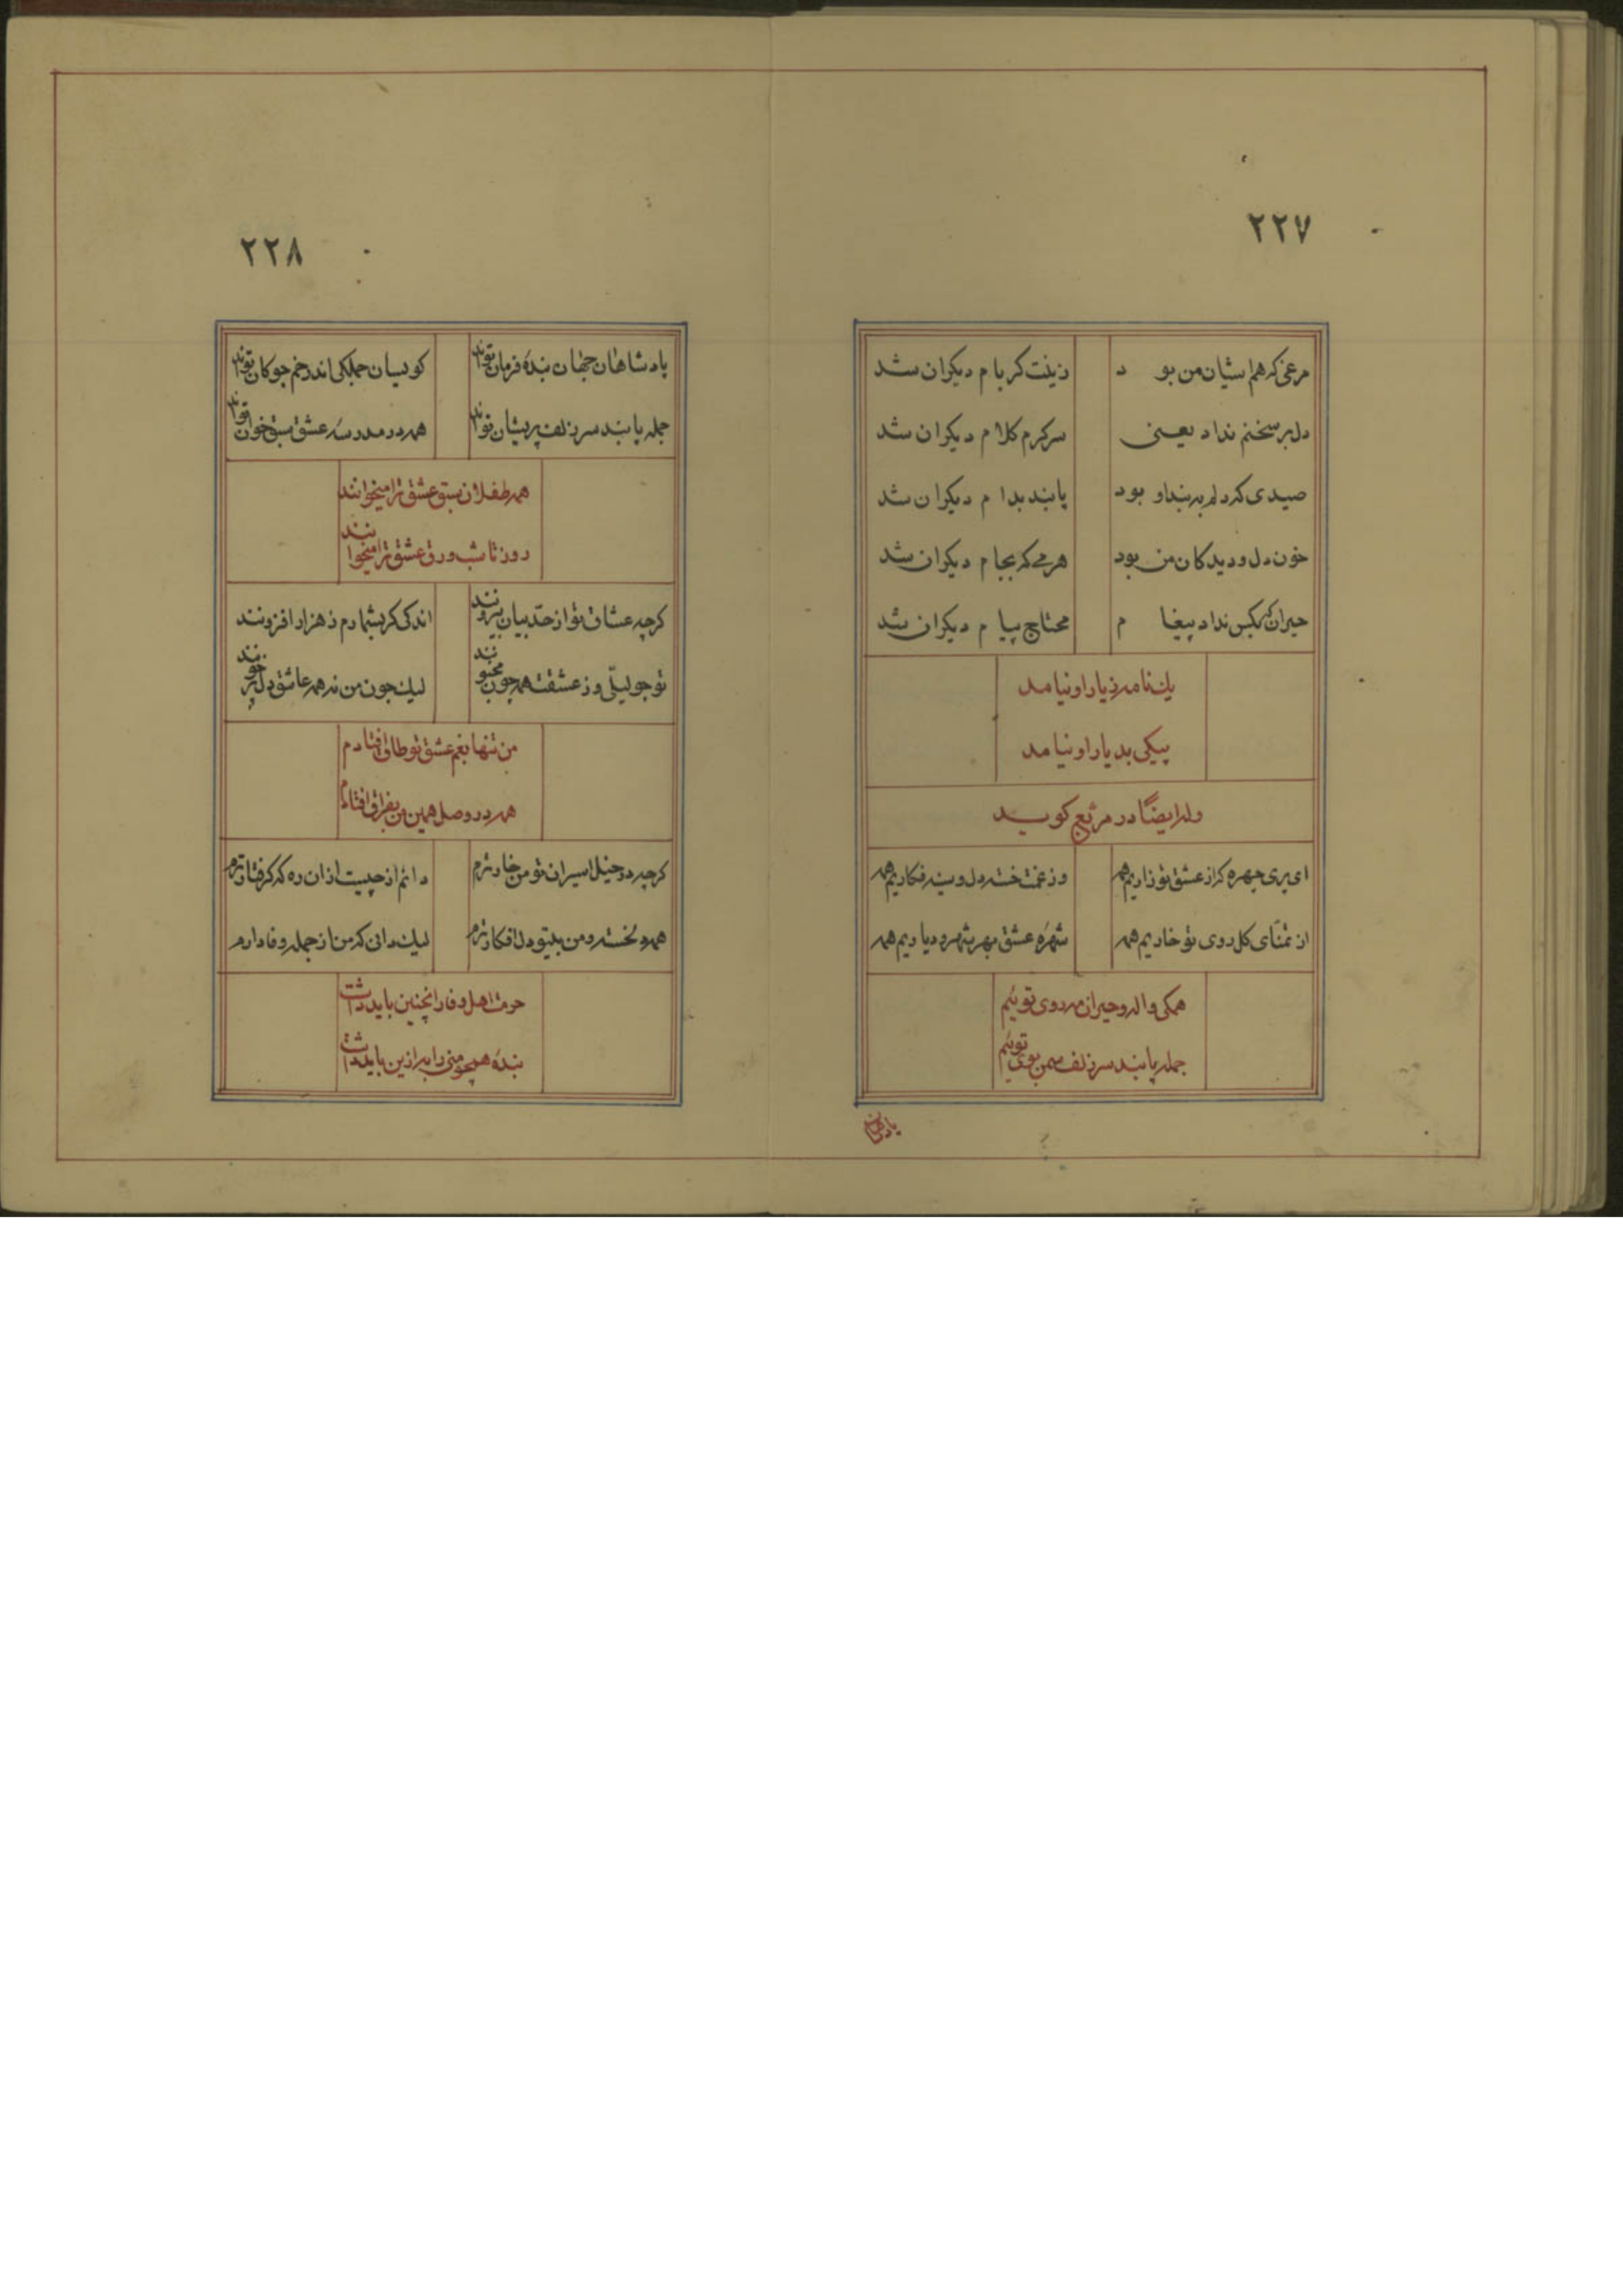 ۲۲۷
مرغی که هم اشیان من بود	زینت کر بام دیکران شد
دلبر سخنم نداد یعنی	سرکرم کلام دیکران شد
صیدی که دلم به بند او بود	پابند بدام دیکران شد
خون دل و دیدکان من بود	هر می که بجام دیکران شد
حیران که بکس نداد پیغام	محتاج پیام دیکران شد
یک نامه ز یار او نیامد
پیکی بدیار او نیامد
وله ایضًا در مربع کوید
ای پری چهره که از عشق تو زاریم همه	وز غمت خسته دل و سینه فکاریم همه
از تمنّای کل روی تو خاریم همه	شهرهٔ عشق بهر شهر و دیاریم همه
همکی واله و حیران مه روی توئیم
جمله پابند سر زلف سمن بوی توئیم
پادشاهان
۲۲۸
پادشاهان جهان بندهٔ فرمان تواند	کوی سان جملکی اندر خم چوکان تواند
جمله پابند سر زلف پریشان تواند	همه در مدرسهٔ عشق سبق خوان تواند
همه طفلان سبق عشق ترا میخوانند
روز تا شب ورق عشق ترا میخوانند
کرچه عشاق تو از حدّ بیان بیرونند	اندکی کر بشمارم ز هزار افزونند
تو چو لیلی و ز عشقت همه چون مجنونند	لیک چون من نه همه عاشق دل پر خونند
من تنها بغم عشق تو طاق افتادم
همه در وصل همین من بفراق افتادم
کرچه در خیل اسیران تو من خوارترم	دانم از چیست از آن ره که کرفتارترم
همه دلخسته و من بیتو دل افکارترم	لیک دانی که من از جمله وفادارم
حرمت اهل وفا را نچنین باید داشت
بندهٔ همچو منی را به ازین باید داشت